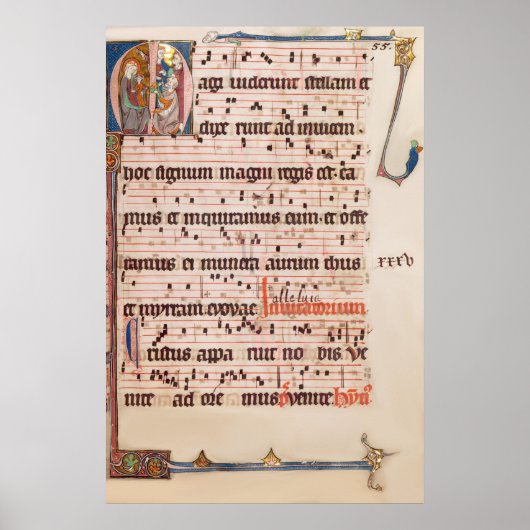 55.
Magi viderunt stellam et
dixe runt ad invicem
hoc signum magni regis est. ea
mus et inquiramus eum. et offe
ramus ei munera aurum thus
xxxv
et myrram. evovae. Invitatorium
alleluia
Cristus appa ruit no bis. Ve
nite ad ore mus. p̄s. Venite.